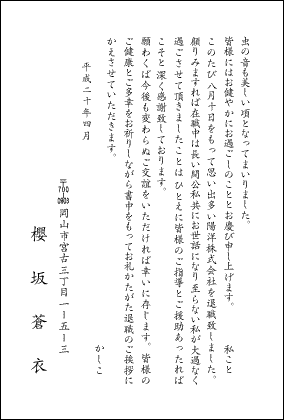 虫の音も美しい頃となってまいりました。
皆様にはお健やかにお過ごしのこととお慶び申し上げます。
私こと
このたび八月十日をもって思い出多い陽洋株式会社を退職致しました。
顧りみますれば在職中は長い間公私共にお世話になり至らない私が大過なく
過ごさせて頂きましたことはひとえに皆様のご指導とご援助あったればこそと深く感謝致しております。
願わくば今後も変わらぬご交誼をいただければ幸いに存じます。皆様の
ご健康とご多幸をお祈りしながら書中をもってお礼かたがた退職のご挨拶に
かえさせていただきます。
かしこ
平成二十年四月
〒700
岡山市宮古三丁目一ー五ー三
櫻坂蒼衣